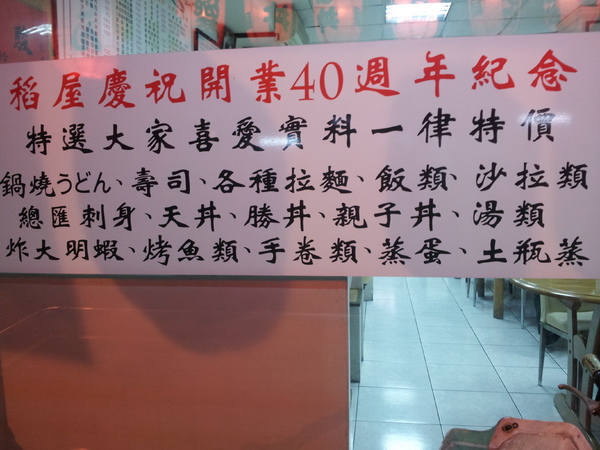 稻屋慶祝開業40週年紀念
特選大家喜愛實料一律特價
鍋燒うどん、壽司、各種拉麵、飯類、沙拉類
總匯刺身、天丼、勝丼、親子丼、湯類
炸大明蝦、烤魚類、手卷類、蒸蛋、土瓶蒸